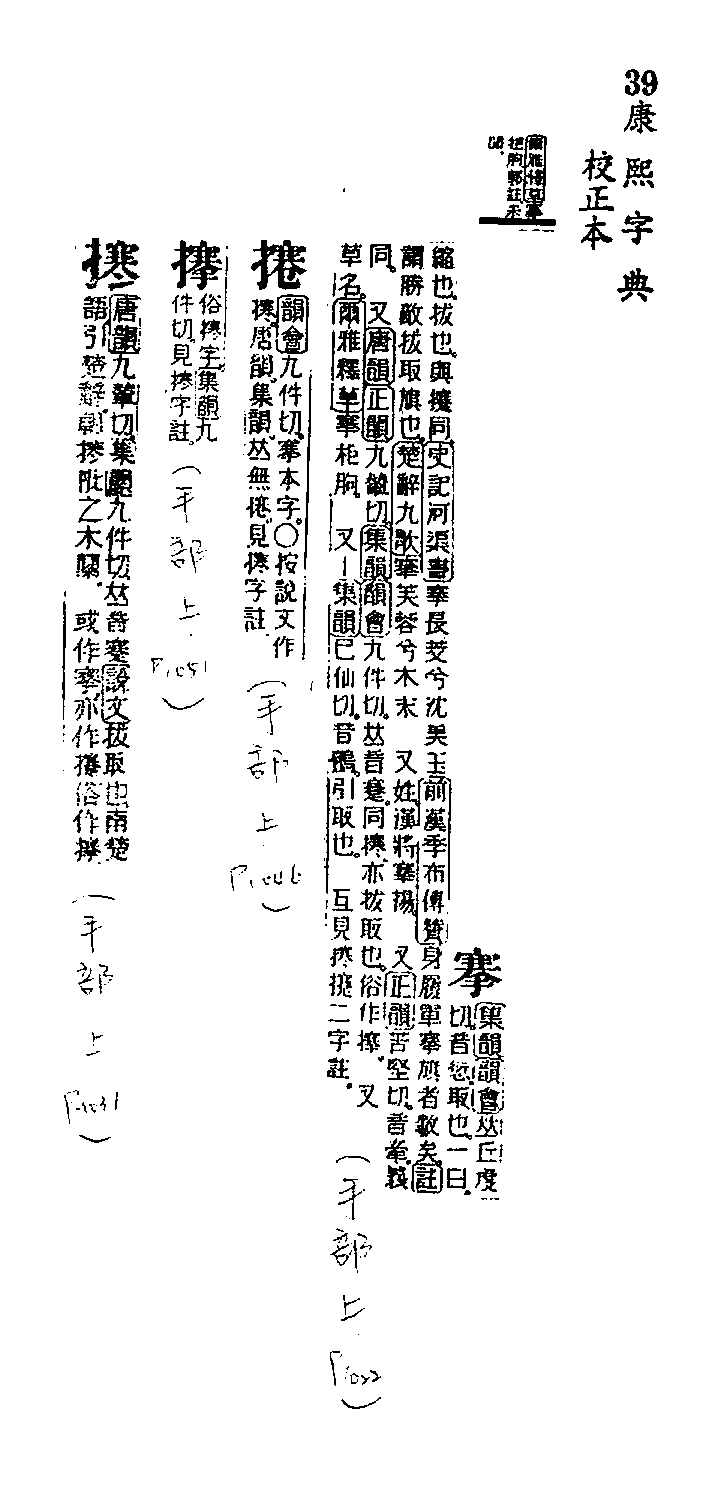 39 康熙字典
校正本
柜朐郭註未
搴
集韻韻會𠀤丘虔
切音愆取也一曰
縮也拔也與攓同史記河渠書搴長茭兮沈美玉前漢季布傳贊身履軍搴旗者數矣註
謂勝敵拔取旗也楚辭九歌搴芙蓉兮木末 又姓漢將搴揚 又正韻苦堅切音牽義
同 又唐韻正韻九輦切集韻韻會九件切𠀤音蹇同㩃亦拔取也俗作 又
草名爾雅釋草搴柜朐 又丨集韻已仙切音鶱引取也 互見㩃攓二字註
(手部上 P1022)
韻會九件切搴本字〇按說文作
㩃唐韻集韻𠀤無 見㩃字註
(手部上 P1046)
俗㩃字集韻九
件切見㩃字註
(手部上 P1051)
㩃
唐韻九輦切集韻九件切𠀤音蹇說文拔取也南楚
語引楚辭朝㩃阰之木蘭 或作搴亦作攓俗作
(手部上 P1031)